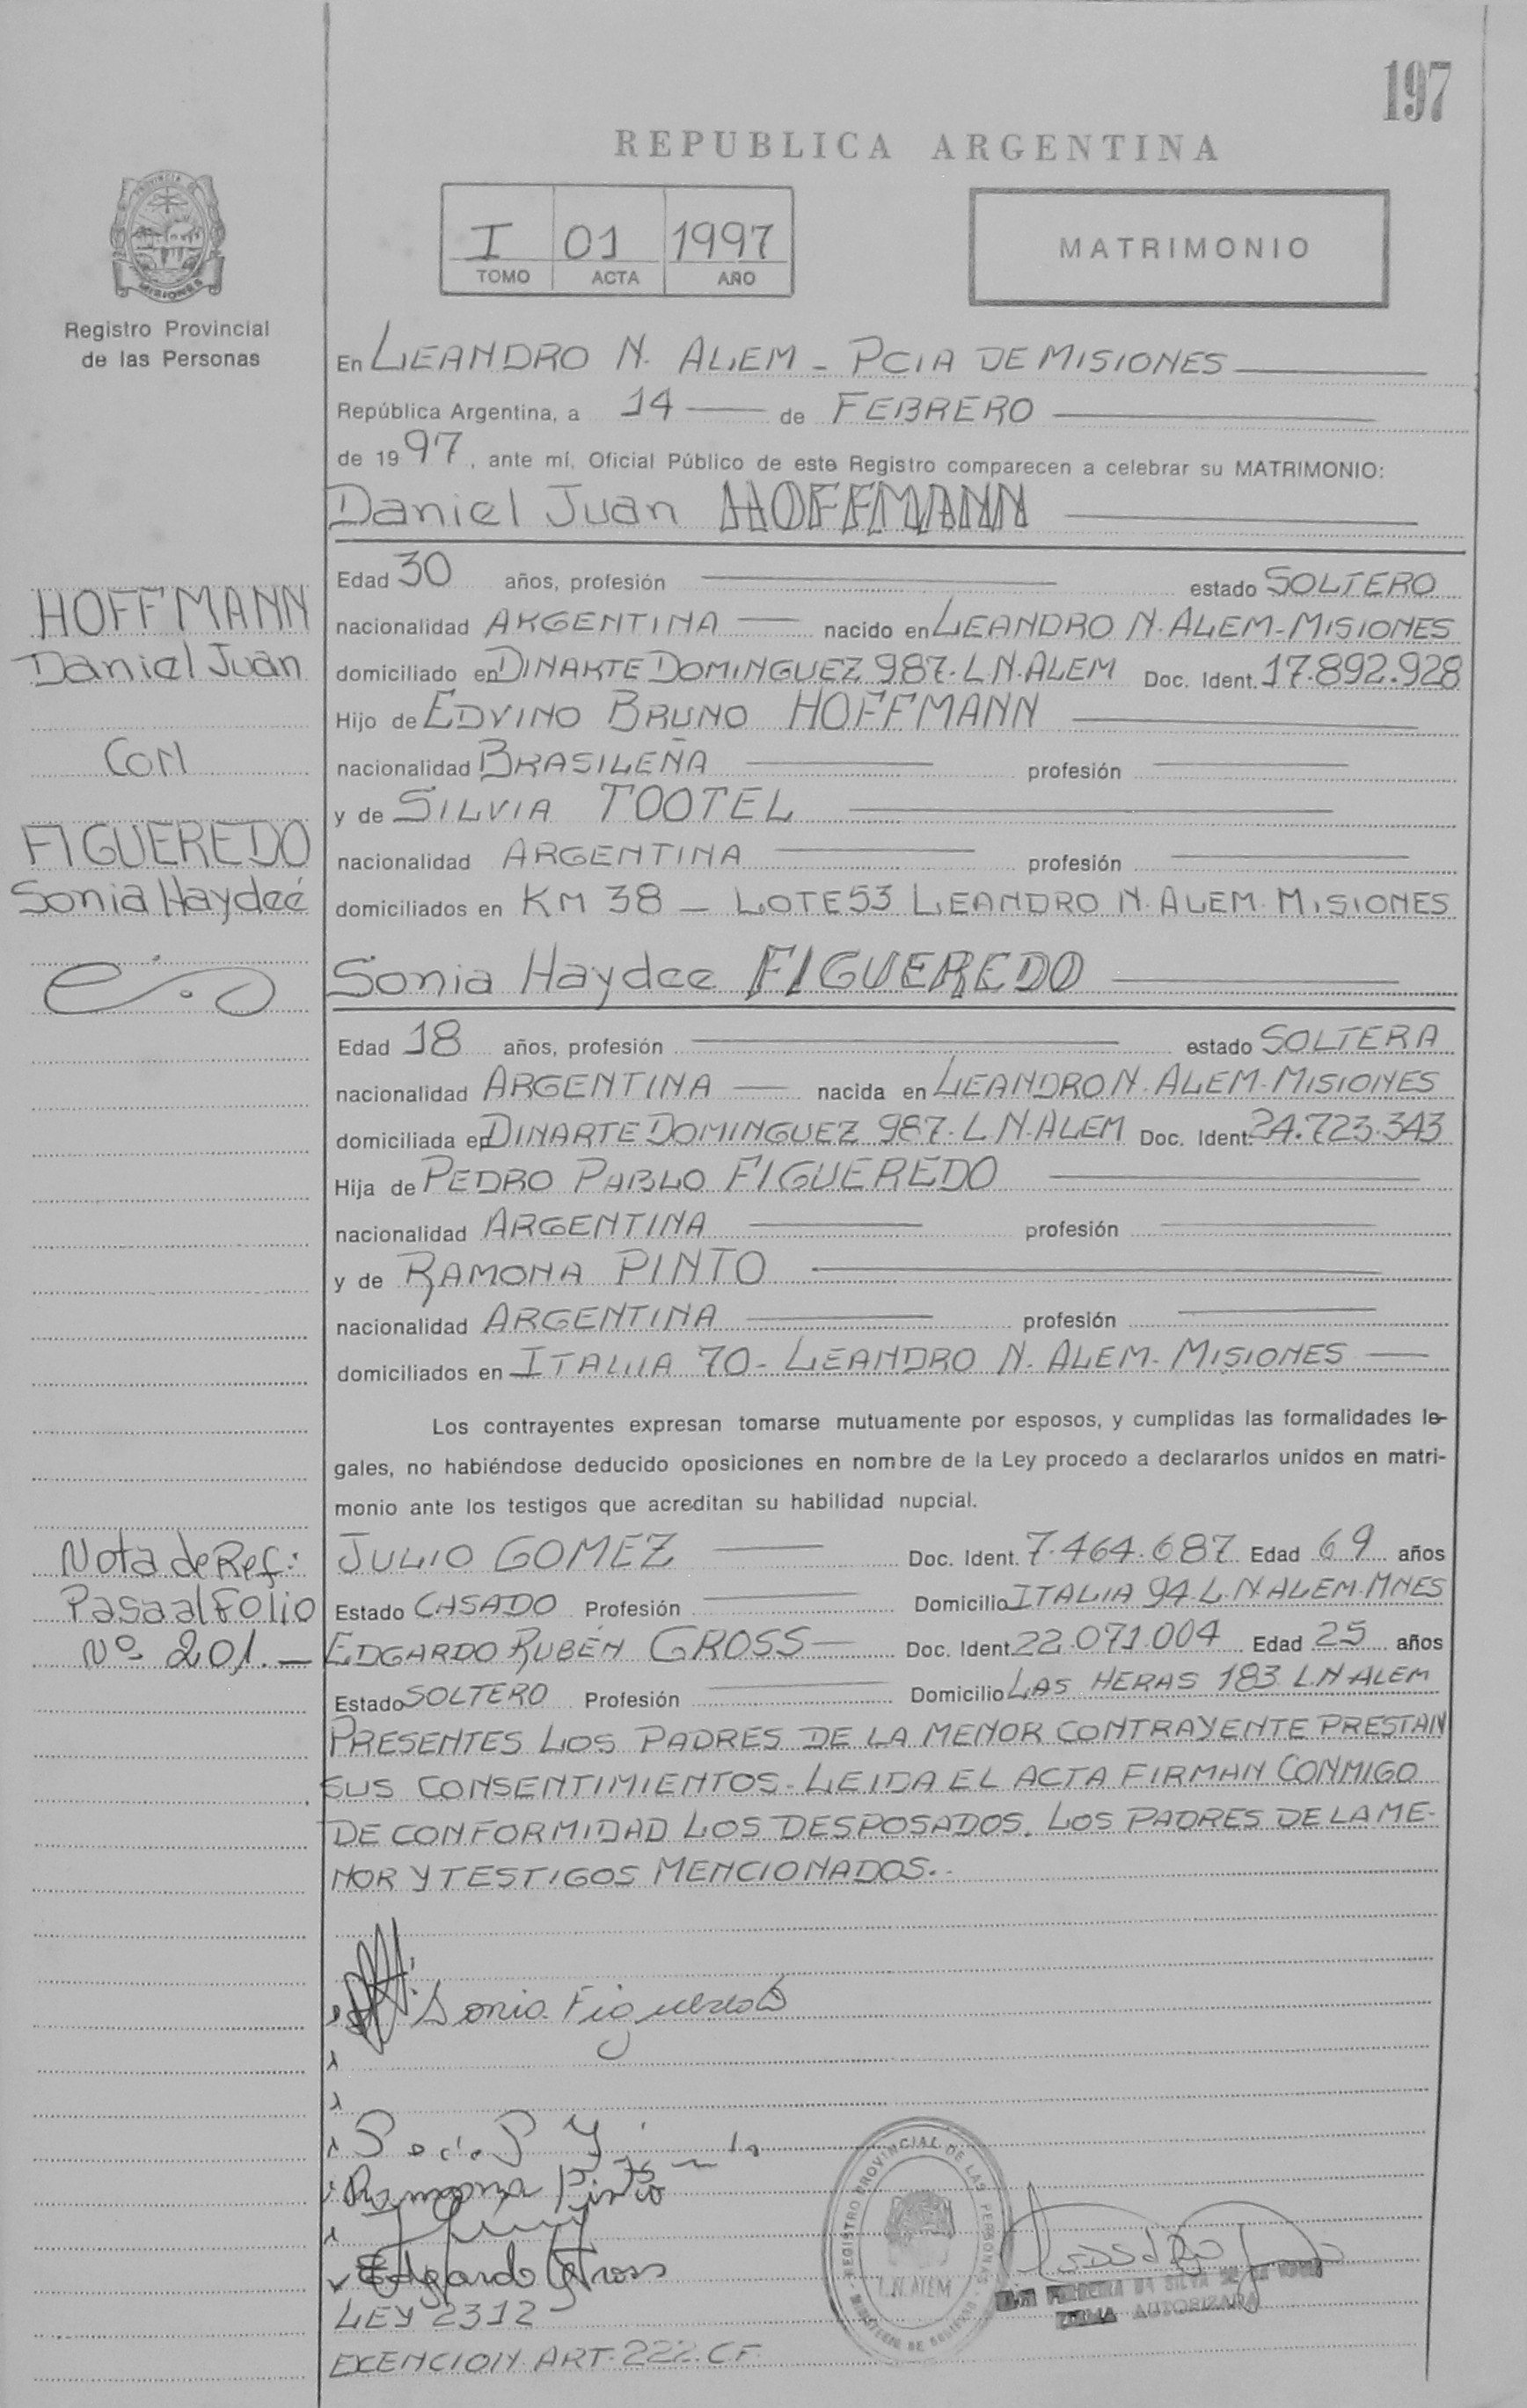 197
REPUBLICA ARGENTINA
I 01 1997
TOMO ACTA AÑO
MATRIMONIO
PROVINCIA DE
MISIONES
Registro Provincial
de las Personas
En LEANDRO N. ALEM - PCIA DE MISIONES
República Argentina, a 14 de FEBRERO
de 1997, ante mí, Oficial Público de este Registro comparecen a celebrar su MATRIMONIO:
Daniel Juan HOFFMANN
Edad 30 años, profesión estado SOLTERO
nacionalidad ARGENTINA nacido en LEANDRO N. ALEM-MISIONES
domiciliado en DINARTE DOMINGUEZ 987-L.N.ALEM Doc. Ident. 17.892.928
Hijo de EDVINO BRUNO HOFFMANN
nacionalidad BRASILEÑA profesión
y de SILVIA TOOTEL
nacionalidad ARGENTINA profesión
domiciliados en KM 38 - LOTE 53 LEANDRO N. ALEM-MISIONES
Sonia Haydee FIGUEREDO
Edad 18 años, profesión estado SOLTERA
nacionalidad ARGENTINA nacida en LEANDRO N. ALEM-MISIONES
domiciliada en DINARTE DOMINGUEZ 987-L.N.ALEM Doc. Ident. 24.723.343
Hija de PEDRO PABLO FIGUEREDO
nacionalidad ARGENTINA profesión
y de RAMONA PINTO
nacionalidad ARGENTINA profesión
domiciliados en ITALIA 70- LEANDRO N. ALEM- MISIONES
Los contrayentes expresan tomarse mutuamente por esposos, y cumplidas las formalidades le-
gales, no habiéndose deducido oposiciones en nombre de la Ley procedo a declararlos unidos en matri-
monio ante los testigos que acreditan su habilidad nupcial.
JULIO GOMEZ Doc. Ident. 7.464.687 Edad 69 años
Estado CASADO Profesión Domicilio ITALIA 94 L.N.ALEM-MNES
EDGARDO RUBÉN GROSS Doc. Ident. 22.071.004 Edad 25 años
Estado SOLTERO Profesión Domicilio LAS HERAS 183 L.N ALEM
PRESENTES LOS PADRES DE LA MENOR CONTRAYENTE PRESTAN
SUS CONSENTIMIENTOS- LEIDA EL ACTA FIRMAN CONMIGO
DE CONFORMIDAD LOS DESPOSADOS. LOS PADRES DE LA ME-
NOR Y TESTIGOS MENCIONADOS.-
Sonia Figueredo
Ramona Pinto
Edgardo Gross
LEY 2312
EXENCION ART. 222. CF
REGISTRO PROVINCIAL DE LAS PERSONAS
L.N. ALEM
MINISTERIO DE GOBIERNO
FERREIRA DA SILVA
FIRMA AUTORIZADA
HOFFMANN
Daniel Juan
CON
FIGUEREDO
Sonia Haydeé
Nota de Ref.:
Pasa al Folio
Nº 201.-